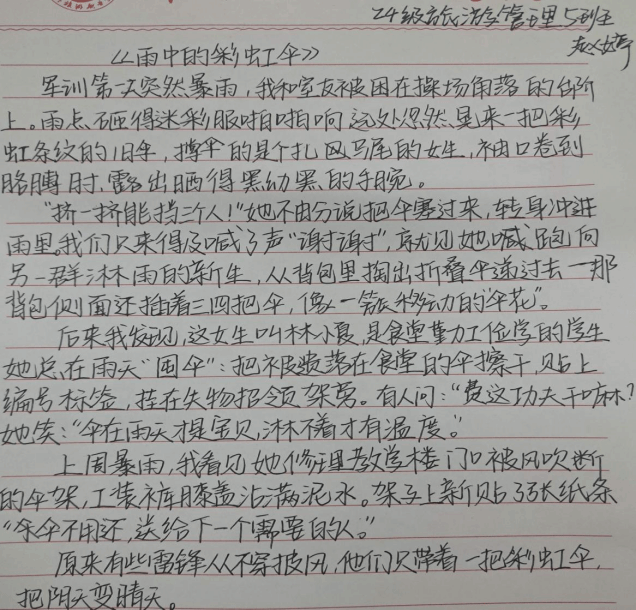 24级旅游管理5班
赵婷
《雨中的彩虹伞》
军训第一天突然暴雨,我和室友被困在操场角落的台阶
上。雨点砸得迷彩服啪啪响远处忽然晃来一把彩
虹条纹的旧伞,撑伞的是个扎双马尾的女生,袖口卷到
胳膊肘,露出晒得黑黝黑的手腕。
“挤一挤能挡三个人!”她不由分说把伞塞过来,转身冲进
雨里。我们只来得及喊了声“谢谢”,就见她喊跑向
另一群淋雨的新生,从背包里掏出折叠伞递过去一那
背包侧面还插着三四把伞,像一簇移动的“伞花”。
后来我发现,这女生叫林小夏,是食堂勤工俭学的学生
她总在雨天“囤伞”:把被遗落在食堂的伞擦干,贴上
编号标签,挂在失物招领架旁。有人问:“费这功夫干嘛?
她笑:“伞在雨天才是宝贝,淋不着才有温度。”
上周暴雨,我看见她修理教学楼门口被风吹断
的伞架,工装裤膝盖沾满泥水。架子上新贴了张纸条
“余伞不用还,送给下一个需要的人。”
原来有些雷锋从不穿披风,他们只带着一把彩虹伞,
把阴天变晴天。